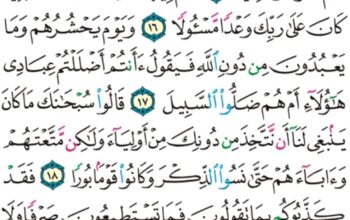 كَانَ عَلَىٰ رَبِّكَ وَعْدًا مَّسْـُٔولًا ١٦ وَيَوْمَ يَحْشُرُهُمْ وَمَا
يَعْبُدُونَ مِن دُونِ ٱللَّهِ فَيَقُولُ ءَأَنتُمْ أَضْلَلْتُمْ عِبَادِى
هَـٰٓؤُلَآءِ أَمْ هُمْ ضَلُّوا۟ ٱلسَّبِيلَ ١٧ قَالُوا۟ سُبْحَـٰنَكَ مَا كَانَ
يَنۢبَغِى لَنَآ أَن نَّتَّخِذَ مِن دُونِكَ مِنْ أَوْلِيَآءَ وَلَـٰكِن مَّتَّعْتَهُمْ
وَءَابَآءَهُمْ حَتَّىٰ نَسُوا۟ ٱلذِّكْرَ وَكَانُوا۟ قَوْمًۢا بُورًا ١٨ فَقَدْ
كَذَّبُوكُم بِمَا تَقُولُونَ فَمَا تَسْتَطِيعُونَ صَرْفًا وَلَا